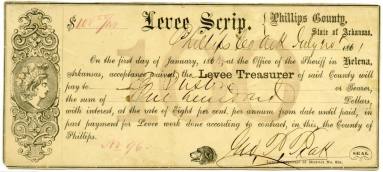 $100 00/100
Levee Scrip.
Phillips County,
State of Arkansas.
Phillips Co Ark July 1861
On the first day of January, 186 , at the Office of the Sheriff in Helena,
Arkansas, acceptance waived, the Levee Treasurer of said County will
pay to or Bearer,
the sum of hundred Dollars,
with interest, at the rate of Eight per cent. per annum from date until paid, in
part payment for Levee work done according to contract, in this, the County of
Phillips.
No 96
SEAL